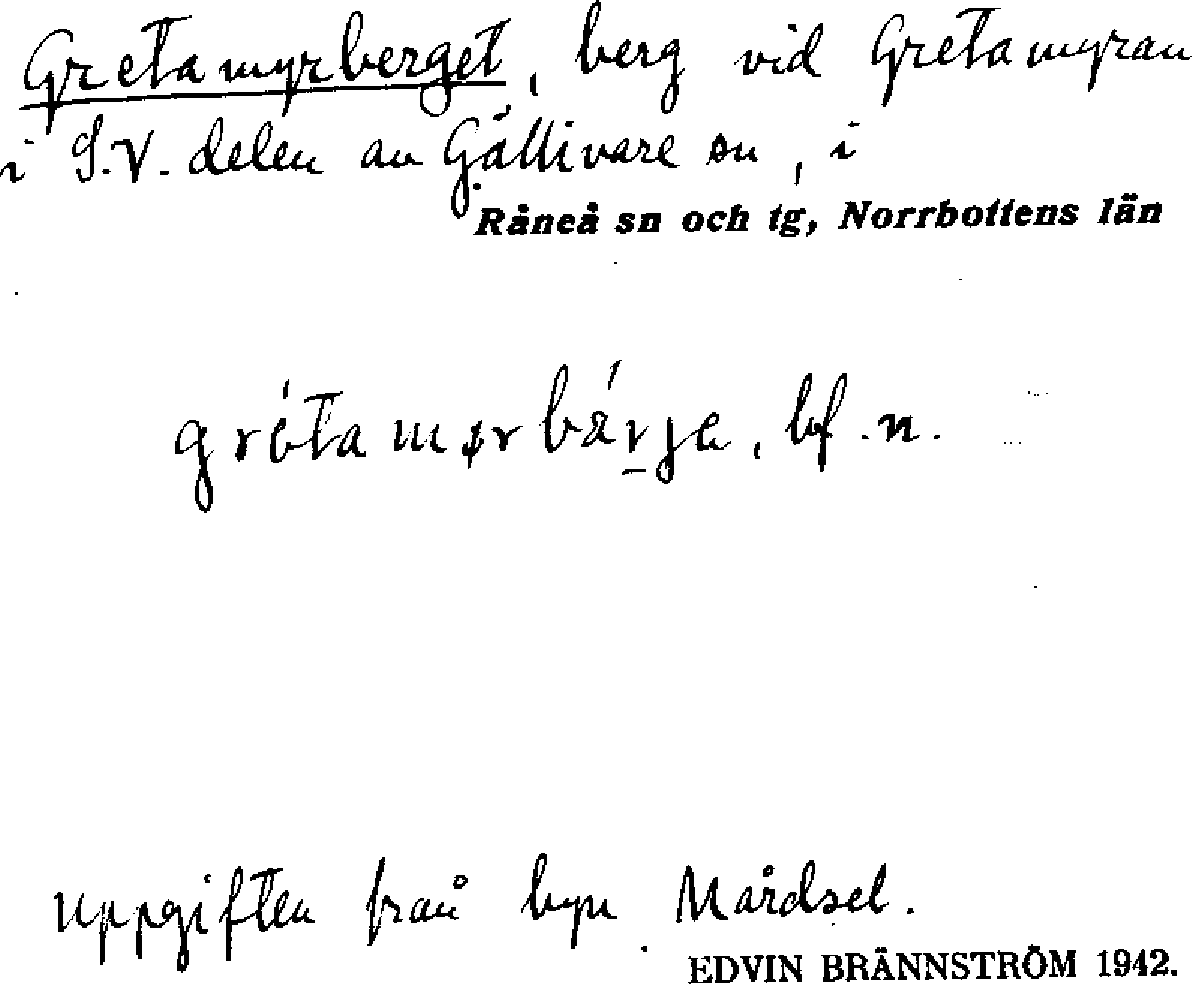 Gretamyrberget, berg vid Gretamyran
i S.V. delen av Gällivare sn, i
Råneå sn och tg, Norrbottens län
grétamørbárje, bf. n.
Uppgiften från byn Mårdsel.
EDVIN BRÄNNSTRÖM 1942.